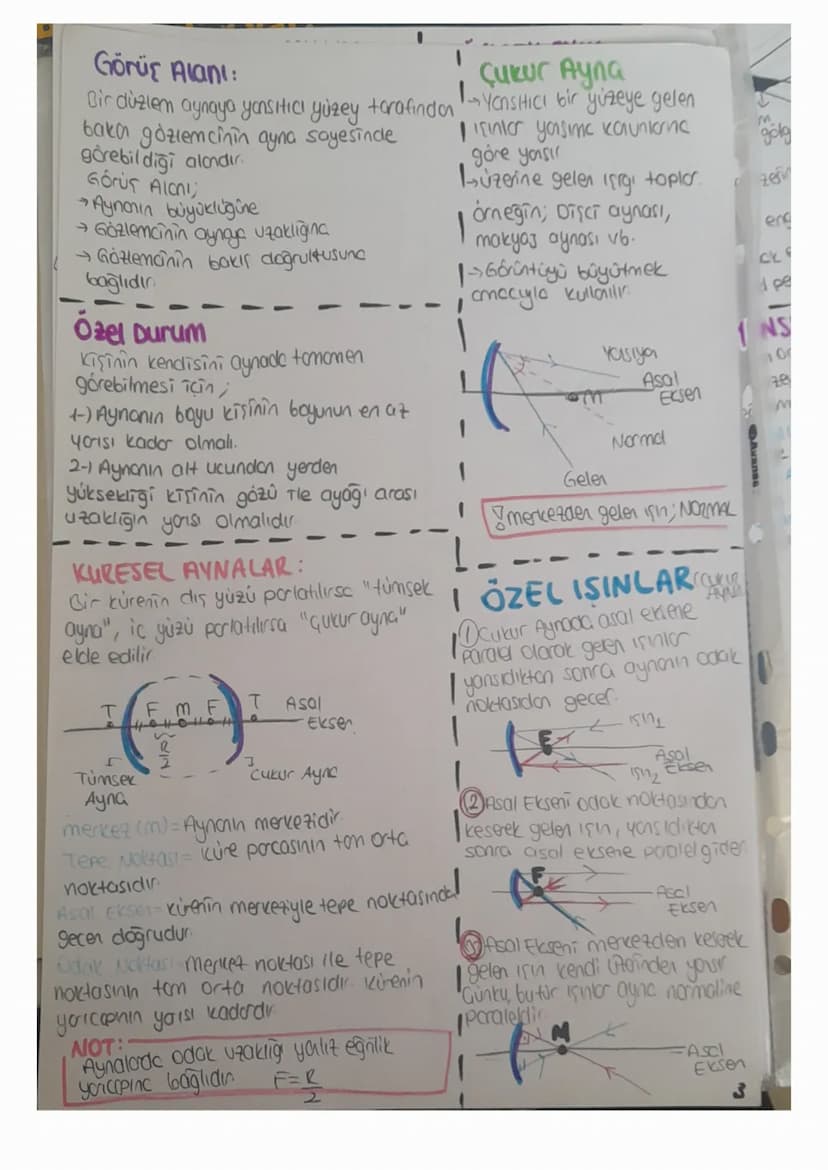 Görüş Alanı:
Bir düzlem aynaya yansıtıcı yüzey tarafından
bakan gözlemcinin ayna sayesinde
görebildiği alandır.
Görüş Alanı;
→ Aynanın büyüklüğüne
→ Gözlemcinin aynaya uzaklığına
→ Gözlemcinin bakış doğrultusuna
bağlıdır.
Özel Durum
Kişinin kendisini aynada tamamen
görebilmesi için;
1-) Aynanın boyu kişinin boyunun en az
yarısı kadar olmalı.
2-) Aynanın alt ucundan yerden
yüksekliği kişinin gözü ile ayağı arası
uzaklığın yarısı olmalıdır.
KÜRESEL AYNALAR:
Bir kürenin dış yüzü parlatılırsa "tümsek
ayna", iç yüzü parlatılırsa "çukur ayna"
elde edilir.
T F M F T Asal
Eksen
R/2
Tümsek
Ayna
Çukur Ayna
merkez (m)= Aynanın merkezidir.
Tepe Noktası= Küre parçasının tam orta
noktasıdır.
Asal Eksen= Kürenin merkeziyle tepe noktasından
geçen doğrudur.
Odak Noktası= Merkez noktası ile tepe
noktasının tam orta noktasıdır. Kürenin
yarıçapının yarısı kadardır.
NOT:
Aynalarda odak uzaklığı yalnız eğrilik
yarıçapına bağlıdır. F=R/2
Çukur Ayna
→ Yansıtıcı bir yüzeye gelen
ışınlar yansıma kanunlarına
göre yansır.
→ Üzerine gelen ışığı toplar.
örneğin; Dişçi aynası,
makyaj aynası vb.
→ Görüntüyü büyütmek
amacıyla kullanılır.
Yansıyan
Asal
Eksen
m
Normal
Gelen
! merkezden gelen ışın; NORMAL
ÖZEL IŞINLAR (Çukur
Ayna)
① Çukur Aynada asal eksene
paralel olarak gelen ışınlar
yansıdıktan sonra aynanın odak
noktasından geçer.
ışın₁
F
Asal
Eksen
ışın₂
② Asal Ekseni odak noktasından
keserek gelen ışın, yansıdıktan
sonra asal eksene paralel gider.
F
Asal
Eksen
③ Asal Ekseni merkezden keserek
gelen ışın kendi üzerinden yansır
Çünkü, bu tür ışınlar ayna normaline
paraleldir.
M
Asal
Eksen
3